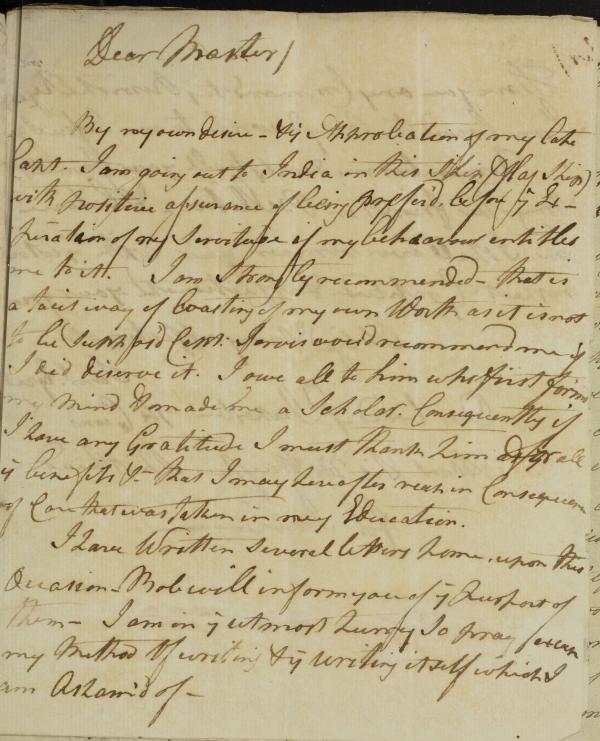 Dear Master/
By my own desire - & ye Approbation of my late
Capt. I am going out to India in this Ship (Flag Ship)
with positive assurance of being preferd, before ye Ex-
piration of my Servitude if my behaviour entitles
me to it. I am Strongly recommended - that is
a tacit way of boasting of my own Worth as it is not
to be Suppos'd Capt: Jarvis would recommend me if
I did deserve it. I owe all to him who first form
me mind & made me a Scholar. Consequently if
I have any Gratitude I must thank him for all
ye benefits &c that I may hereafter reap in Consequence
of Care that was taken in my Education.
I have Written Several letters home, upon this
Occasion - Bob will inform you of ye Purport of
them - I am in ye utmost hurry So pray excuse
my Method Of writing & ye writing itself which I
am Asham'd of -